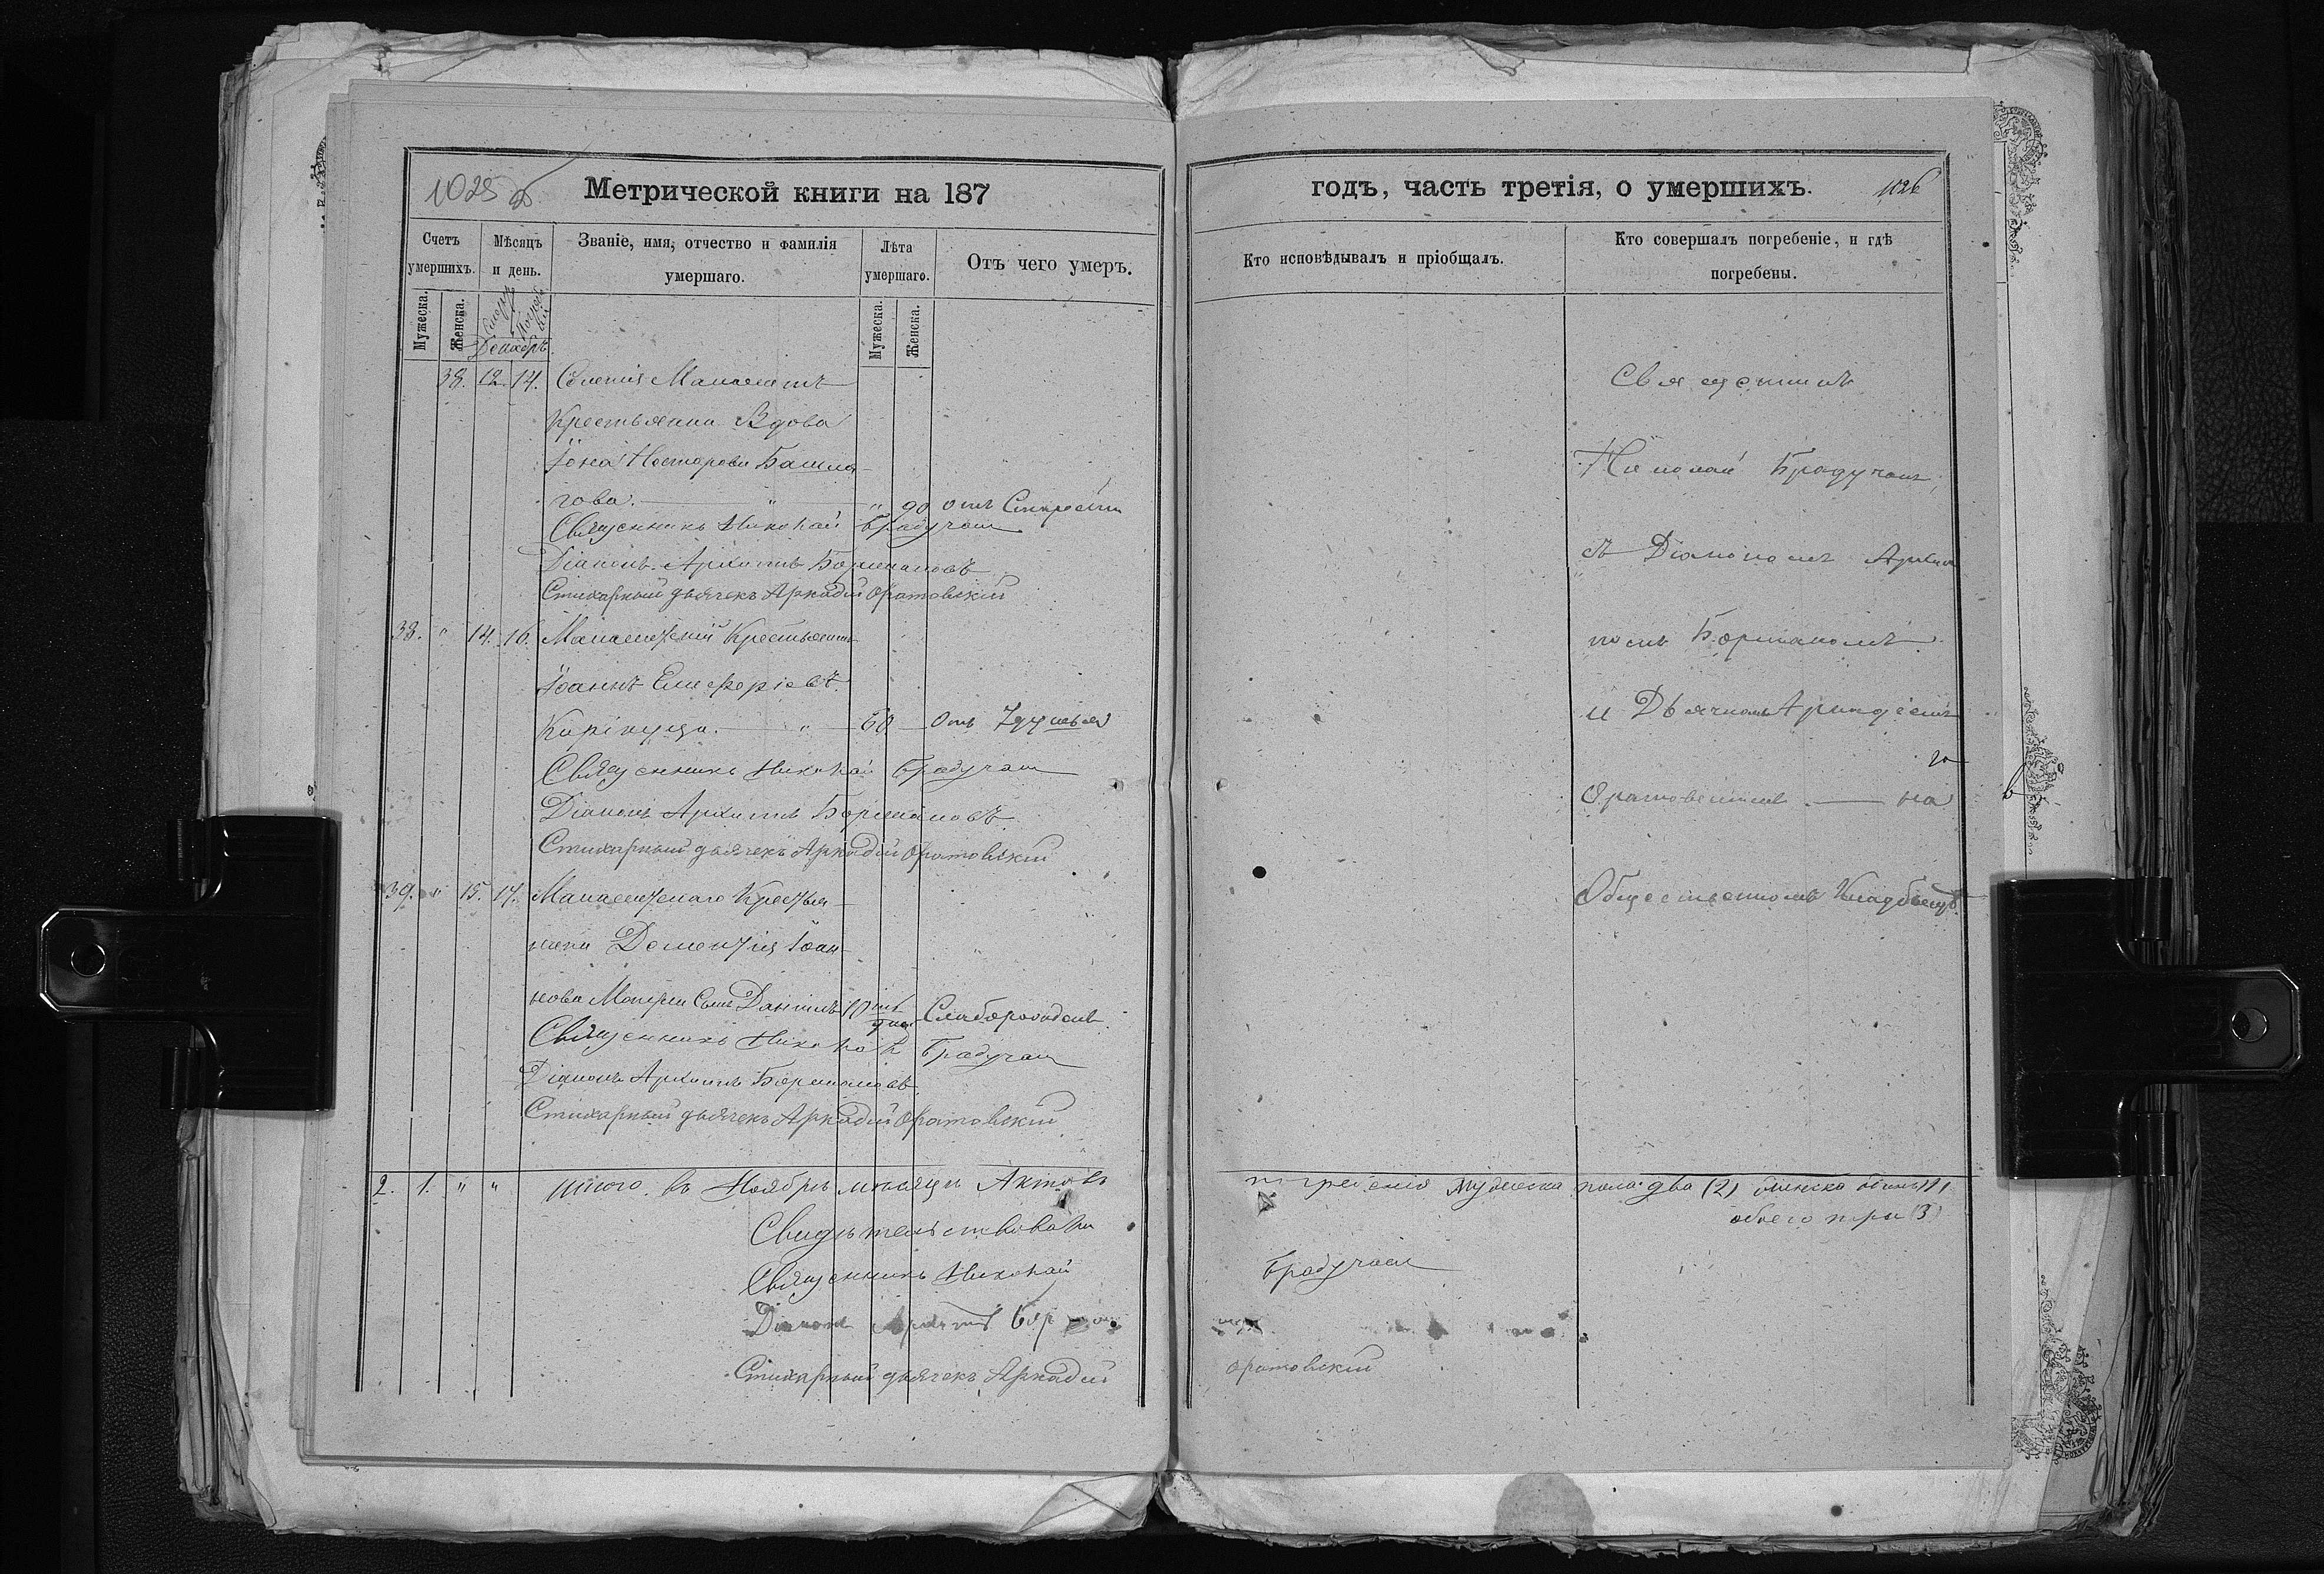 1025 об.
Метрической книги на 187
Счетъ умершихъ.
Мѣсяцъ и день.
Званіе, имя, отчество и фамилія умершаго.
Лѣта умершаго.
Отъ чего умеръ.
Мужеска.
Женска.
Декабрь
Мужеска.
Женска.
38. 12. 14. Селенія
Крестьянина Вдова
Іона Нестерова
гова. " " 90 отъ Старости
Священникъ Николай Брадучанъ
Діаконъ Архиппъ
Стихарный дьячекъ Аркадій Оратовскій
38. " 14. 16. Крестьянинъ
Іоаннъ Елеферіевъ
60 Отъ Удушья
Священникъ Николай Брадучанъ
Діаконъ Архиппъ
Стихарный дьячекъ Аркадій Оратовскій
39. " 15. 17. Крестья-
нина Дементія Іоан-
нова Сынъ Даніилъ 10ть дней
Священникъ Николай Брадучанъ
Діаконъ Архиппъ
Стихарный дьячекъ Аркадій Оратовскій
2. 1. " " Итого въ Ноябрѣ мѣсяцѣ Актовъ
Свидѣтельствовали
Священникъ Николай
Діаконъ Архиппъ
Стихарный дьячекъ Аркадій
годъ, часть третія, о умершихъ.
1026
Кто исповѣдывалъ и пріобщалъ.
Кто совершалъ погребеніе, и гдѣ погребены.
Священникъ
Николай Брадучанъ,
съ Діакономъ Архип-
помъ
и Дьячкомъ Аркадіемъ
Оратовскимъ — на
Общественномъ Кладбищѣ.
погребенія мужеска пола два (2) женска одинъ (1)
обоего три (3)
Брадучанъ
Оратовскій